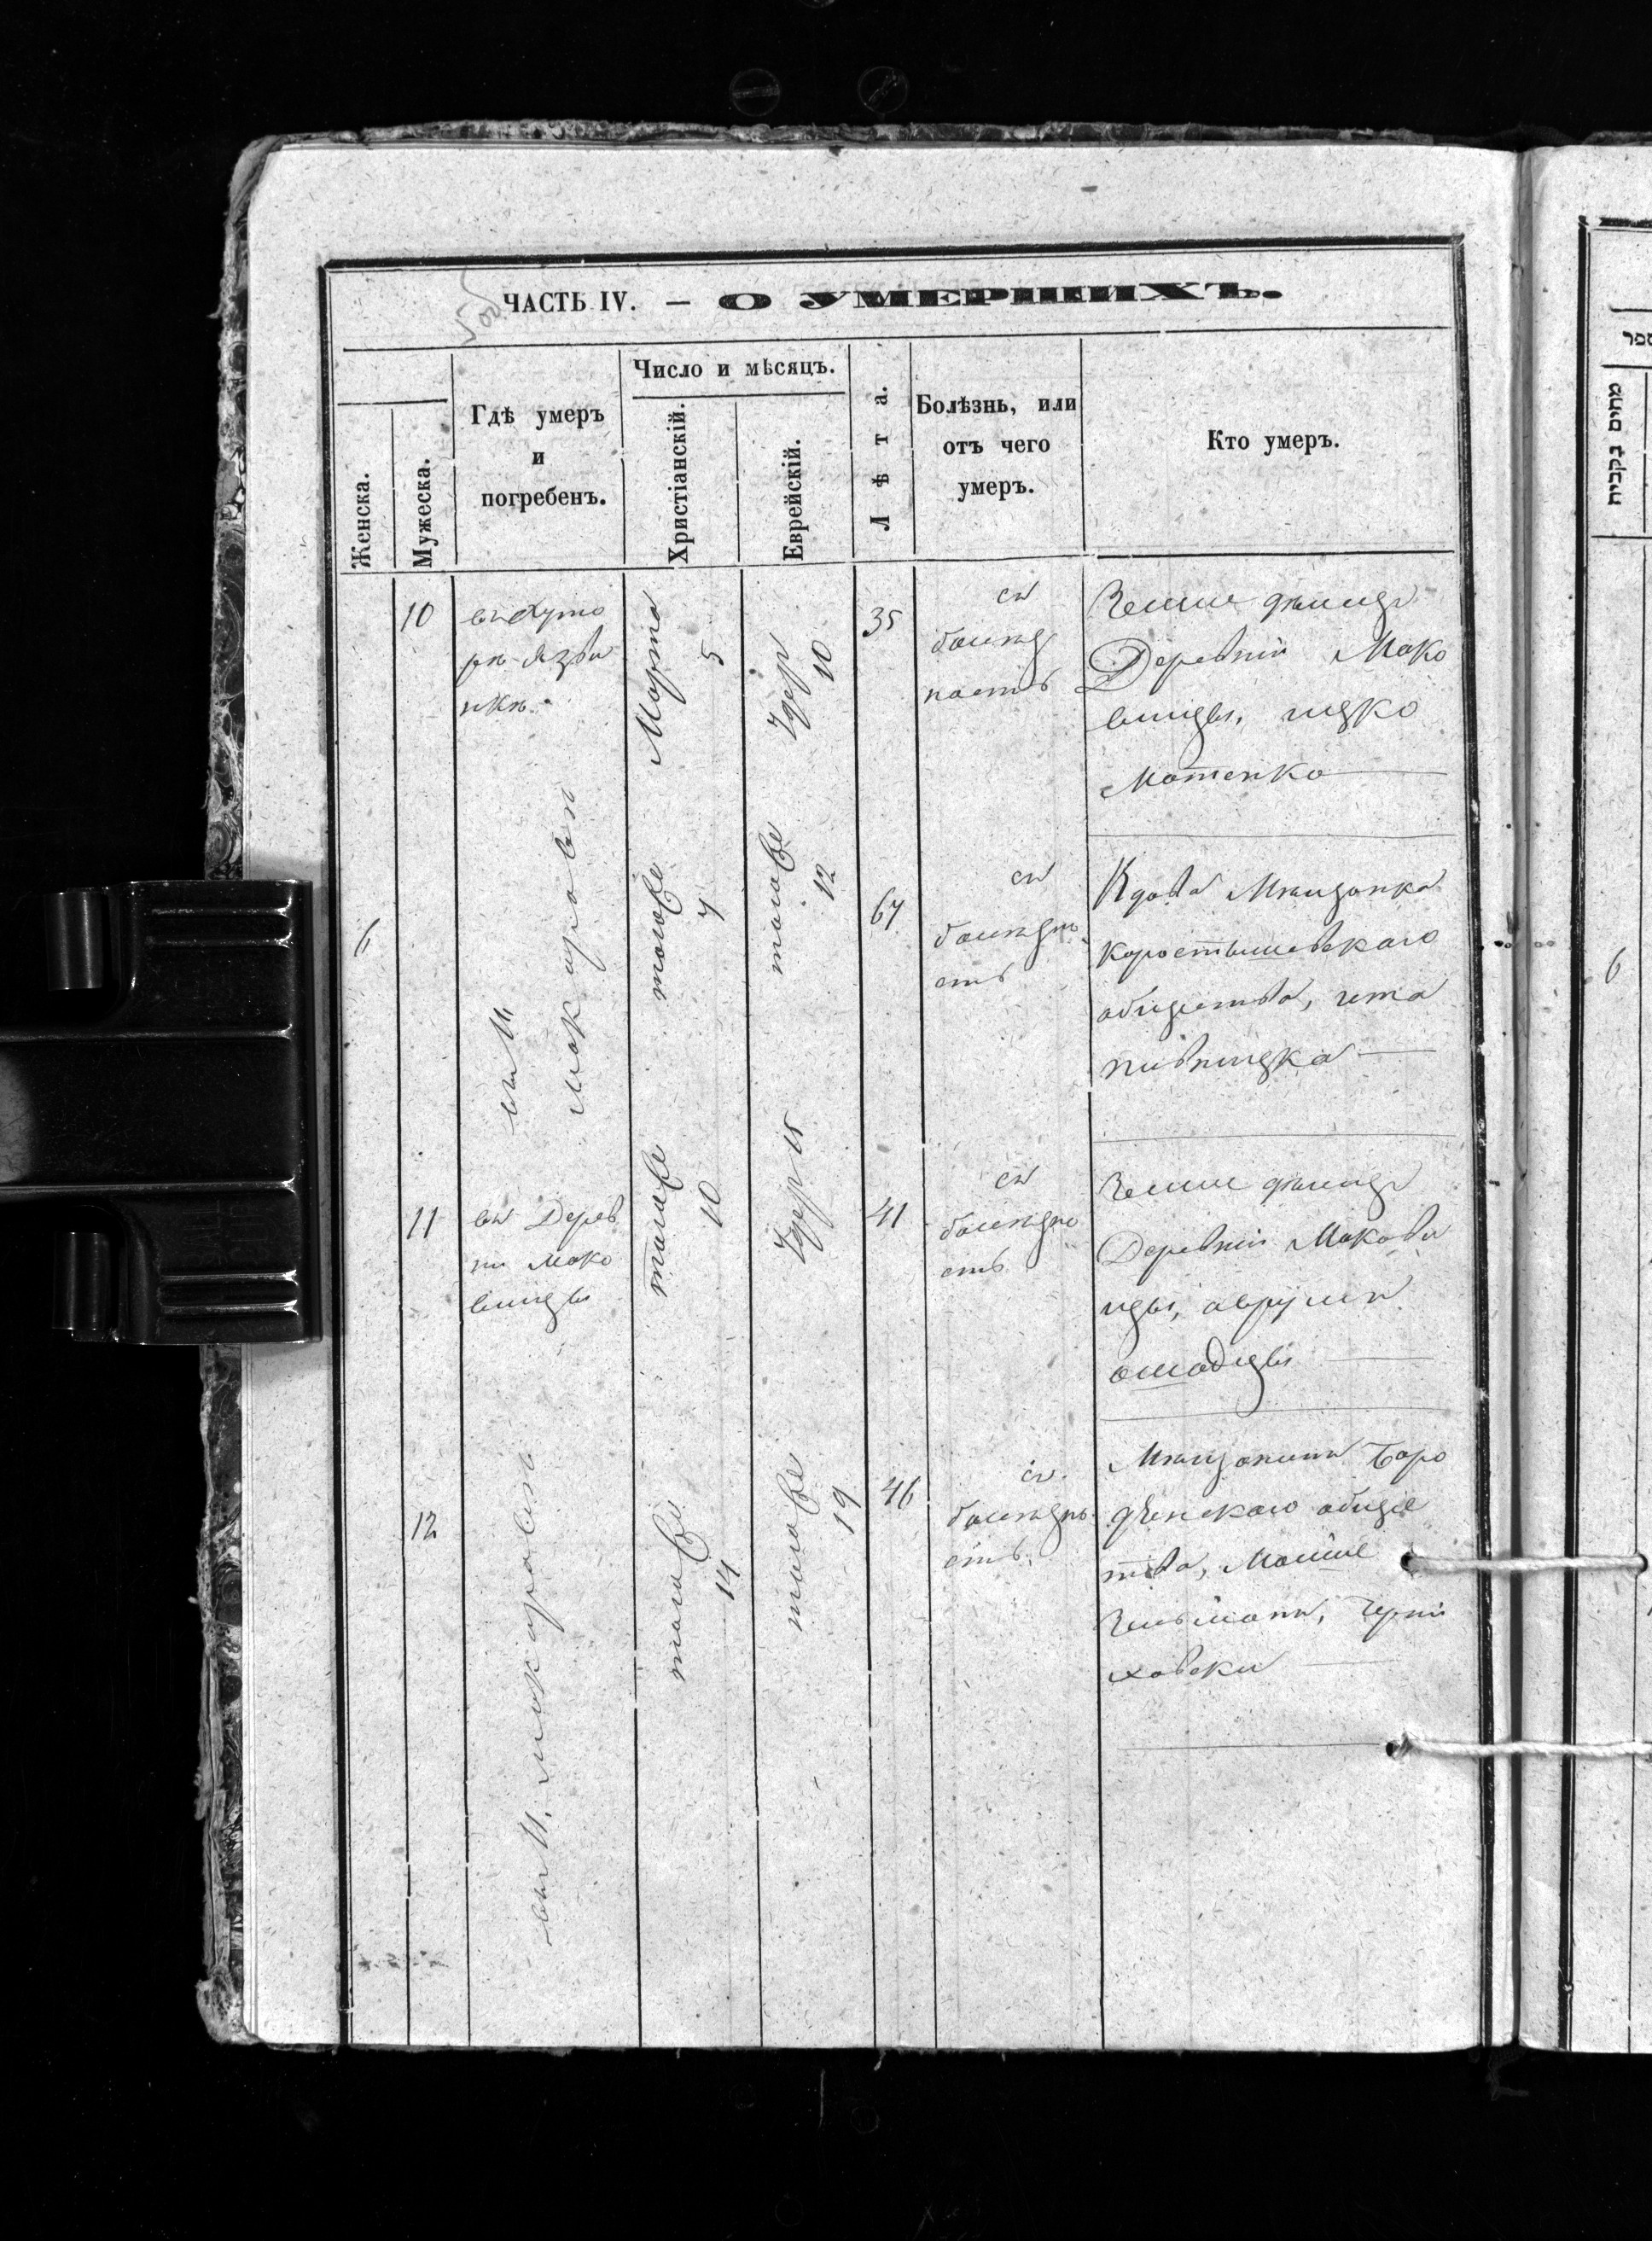 ЧАСТЬ IV. — О УМЕРШИХЪ.
5 об
Женска.
Мужеска.
Гдѣ умеръ
и
погребенъ.
Число и мѣсяцъ.
Христіанскій.
Еврейскій.
Лѣта.
Болѣзнь, или
отъ чего
умеръ.
Кто умеръ.
10
въ Хуто
рѣ
Марта
5
Адер
10
35
съ
болѣзн
ность
Земле дѣлецъ
Деревни Мако
вицы, ицко
Матенко
6
въ М.
Макаровѣ
тогоже
7
тогоже
12
67
съ
болѣзно
сть
Вдова Мѣщанка
Коростышевскаго
общества, гита
пивницка
11
въ Дерев
ни Мако
вицы
тогоже
10
Адер 15
41
съ
болѣзно
сть
Земле дѣлецъ
Деревни Макови
цы, аврумъ
12
въ М. Макаровѣ
тогоже
14
тогоже
19
46
съ
болѣзно
сть
Мѣщанинъ Боро
дянскаго обще
тва, Мошие
Зельманъ, Черни
ховски
ספר
6